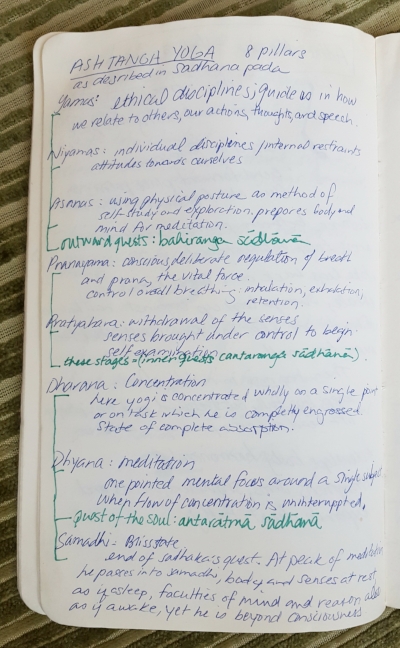 ASHTANGA YOGA 8 pillars
as described in Sadhana pada
Yamas: ethical disciplines; guide us in how
we relate to others, our actions, thoughts, and speech.
Niyamas: individual disciplines/internal restraints
attitudes towards ourselves
Asanas: using physical posture as method of
self study and exploration, prepares body and
mind for meditation.
outward quests: bahiranga sādhānā
Pranayama: conscious deliberate regulation of breath
and prana, the vital force.
control overall breathing: inhalation, exhalation,
retention.
Pratyahara: withdrawal of the senses
senses brought under control to begin
self examination
these stages = (inner quests antaranga sādhānā)
Dharana: Concentration
here yogi is concentrated wholly on a single point
or on task which he is completely engrossed
State of complete absorption.
Dhyana: meditation
one pointed mental focus around a single subject
when flow of concentration is uninterrupted.
quest of the soul: antarātmā sādhānā
Samadhi = Bliss state
end of sadhaka's quest. At peak of meditation
he passes into samadhi, body and senses at rest,
as if asleep, faculties of mind and reason alert
as if awake, yet he is beyond consciousness